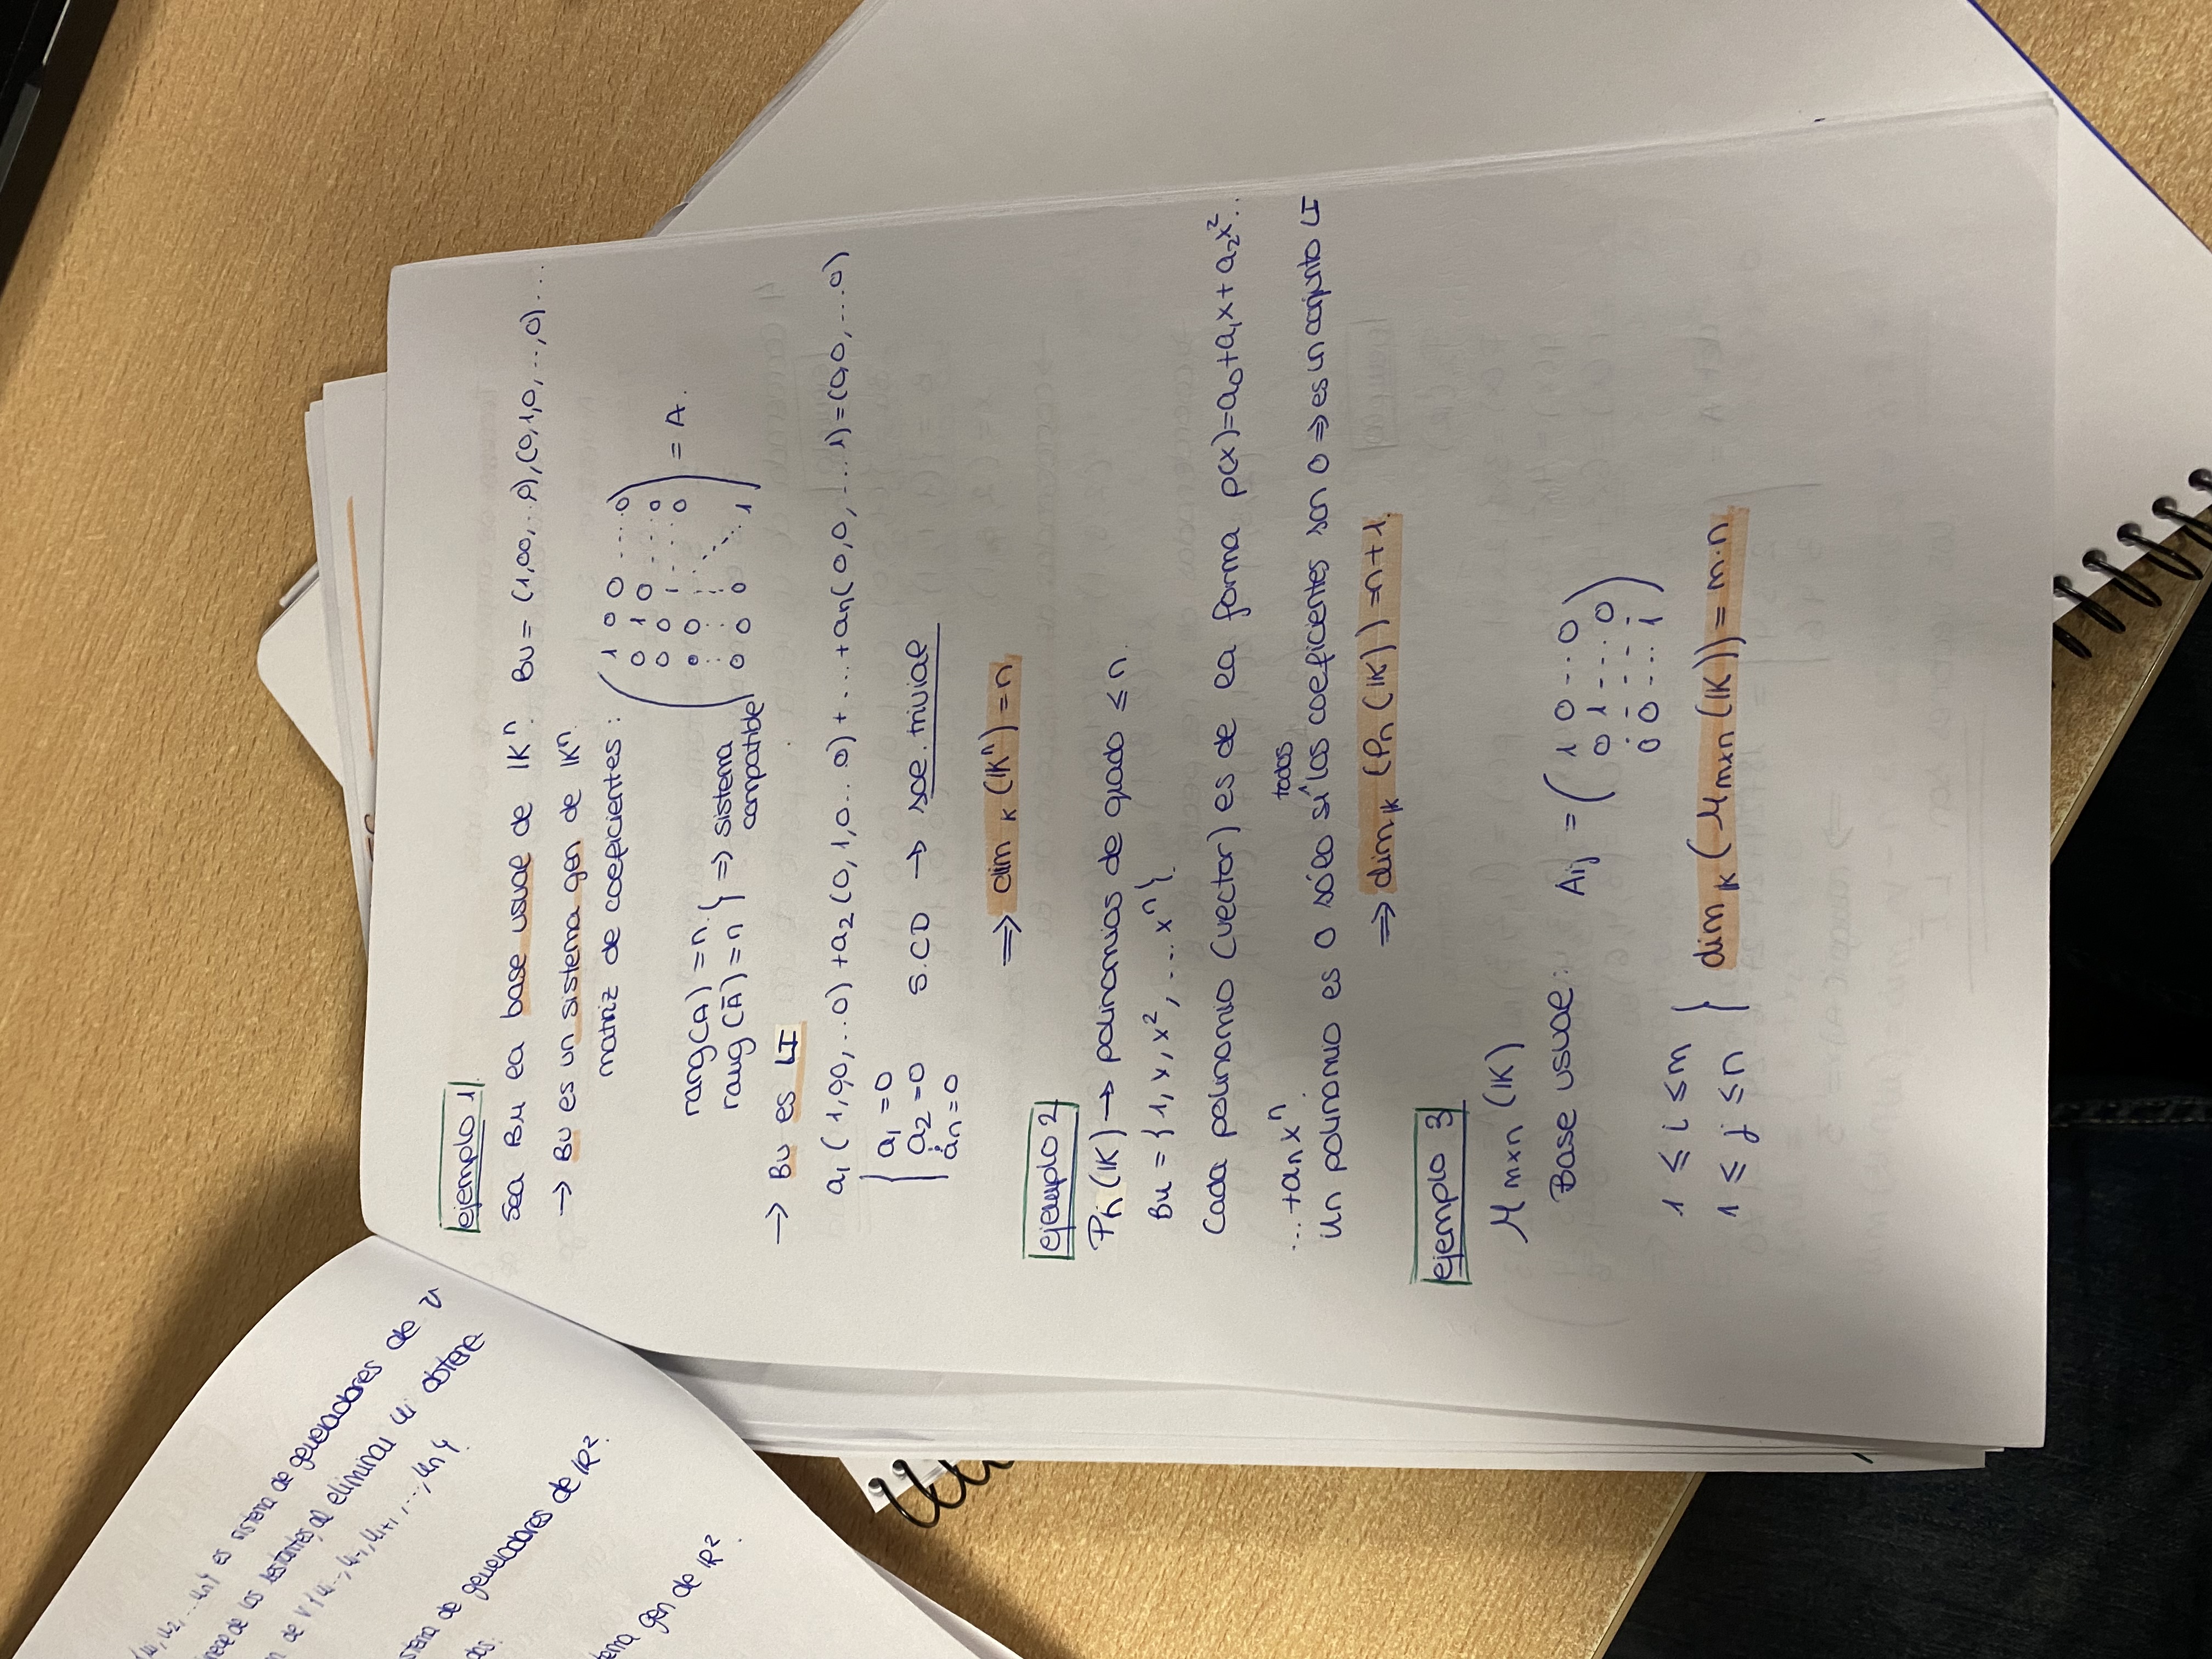 {u1, u2, ... un} es sistema de generadores de V
de los restantes, al eliminar ui obtene-
de V {u1..., ui-1, ui+1, ..., un}.
sistema de generadores de IR².
dos:
tema gen de IR².
ejemplo 1
Sea Bu la base usual de IKⁿ. Bu = (1,0,0,...0),(0,1,0,...,0)...
→ Bu es un sistema gen de IKⁿ.
matriz de coeficientes: ( 1 0 0 .... 0
0 1 0 - - - 0
0 0 1 - - - 0
0 0
0 0 0 ... 1 ) = A.
rang(A) = n.
rang(Ā) = n } ⇒ sistema
compatible
→ Bu es LI
a₁ (1,0,0,...0) + a₂ (0,1,0...0) + ... + an(0,0,...1) = (0,0,...0)
{ a₁ = 0
a₂ = 0 S.CD → sol. trivial
⋮
an = 0
⇒ dim K (IKⁿ) = n
ejemplo 2
Pn (IK) → polinomios de grado ≤ n.
Bu = {1, x, x², ... xⁿ}.
Cada polinomio (vector) es de la forma p(x)=a₀+a₁x+a₂x²..
...+an xⁿ.
todos
Un polinomio es 0 sólo si ^ los coeficientes son 0 ⇒ es un conjunto LI
⇒ dim IK (Pn (IK)) = n+1.
ejemplo 3
M m×n (IK)
Base usual: Aij = ( 1 0 -- 0
0 1 --- 0
- - - - -
0 0 --- 1 )
1 ≤ i ≤ m
1 ≤ j ≤ n } dim IK (M m×n (IK)) = m·n